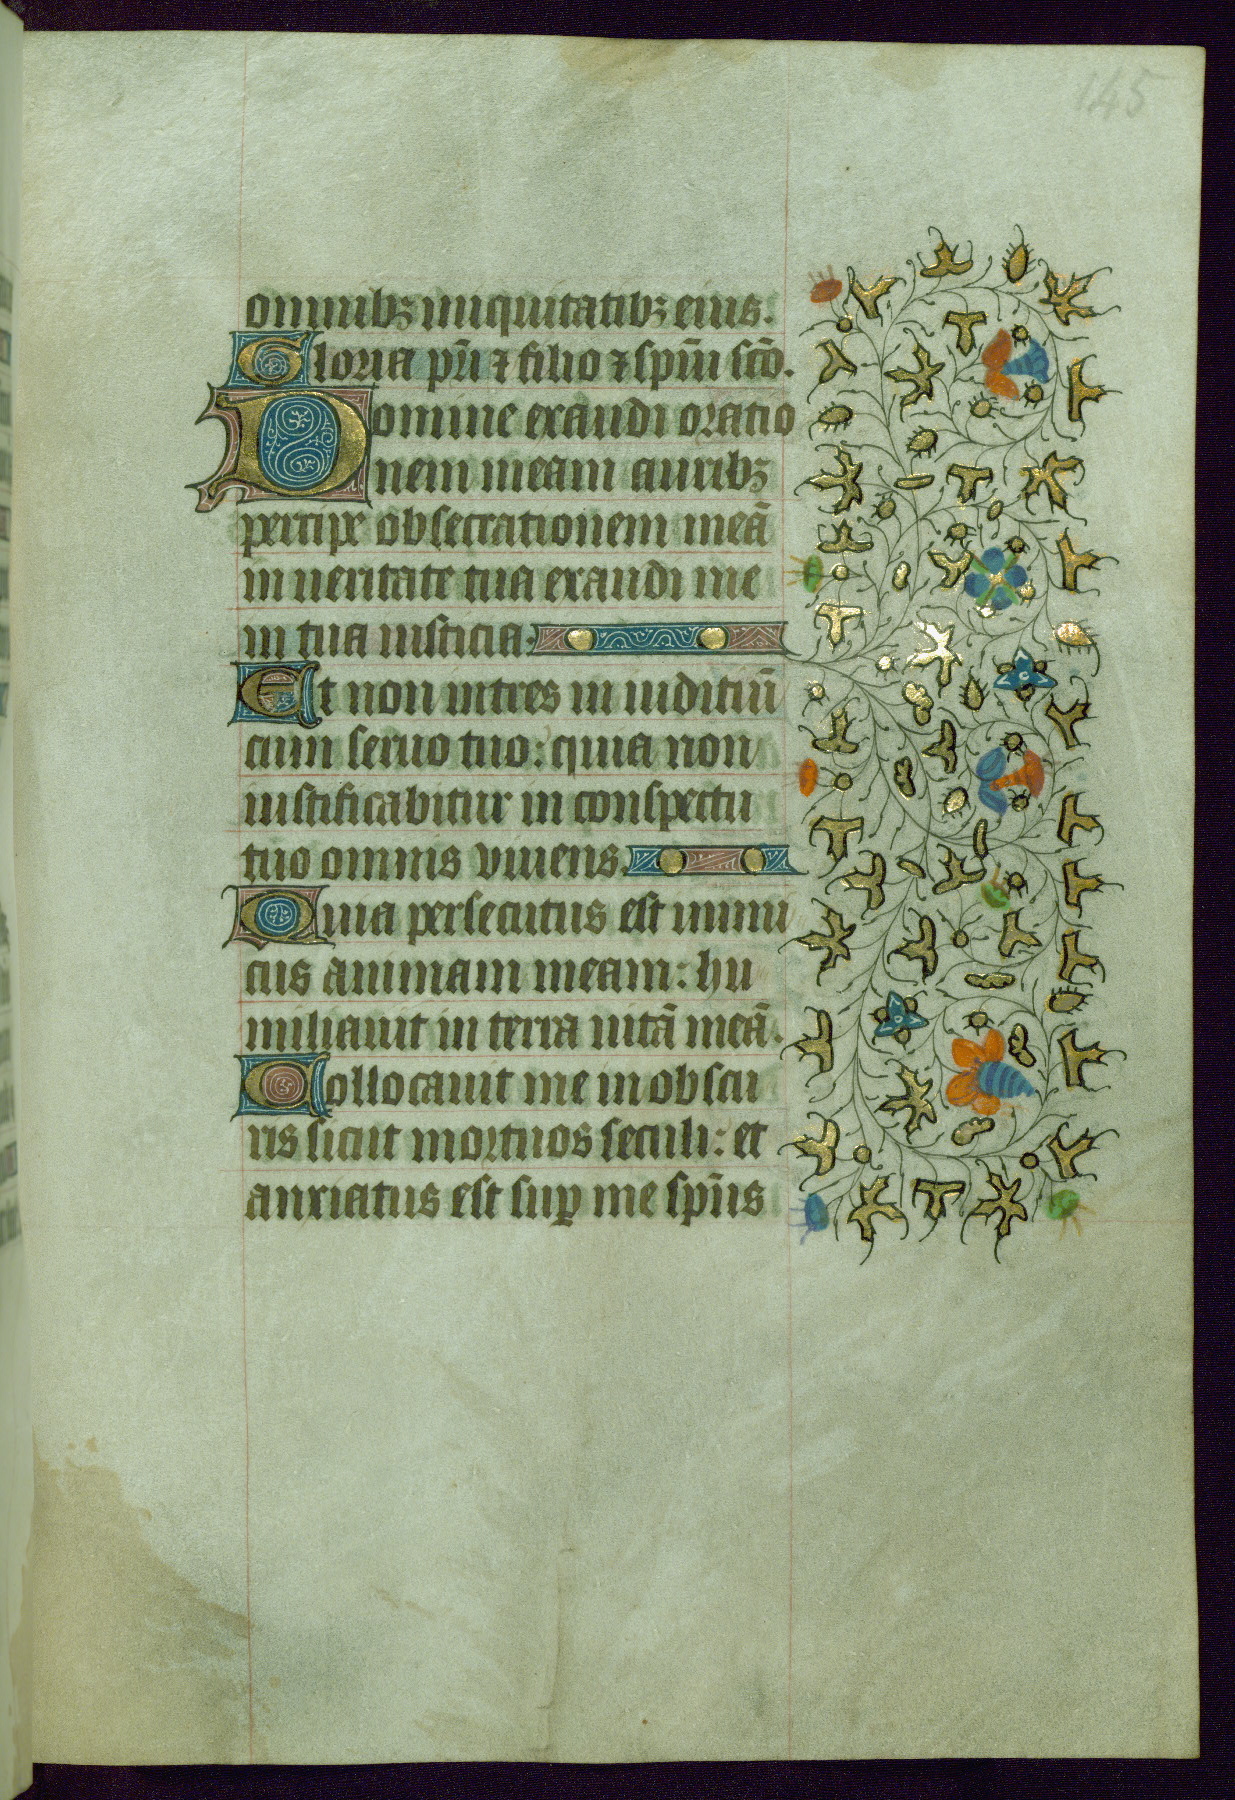 145
omnibꝫ iniquitatibꝫ eius.
Gloria pr̄i ⁊ filio ⁊ spīui sc̄o.
Domine exaudi oratio
nem meam auribꝫ
percipe obsecrationem meā
in ueritate tua exaudi me
in tua iusticia.
Et non intres in iuditiū
cum seruo tuo: quia non
iustificabitur in conspectu
tuo omnis viuens.
Quia persecutus est inimi
cus animam meam: hu
miliauit in terra uitā meā.
Collocauit me in obscu
ris sicut mortuos seculi: et
anxiatus est suꝑ me spūs